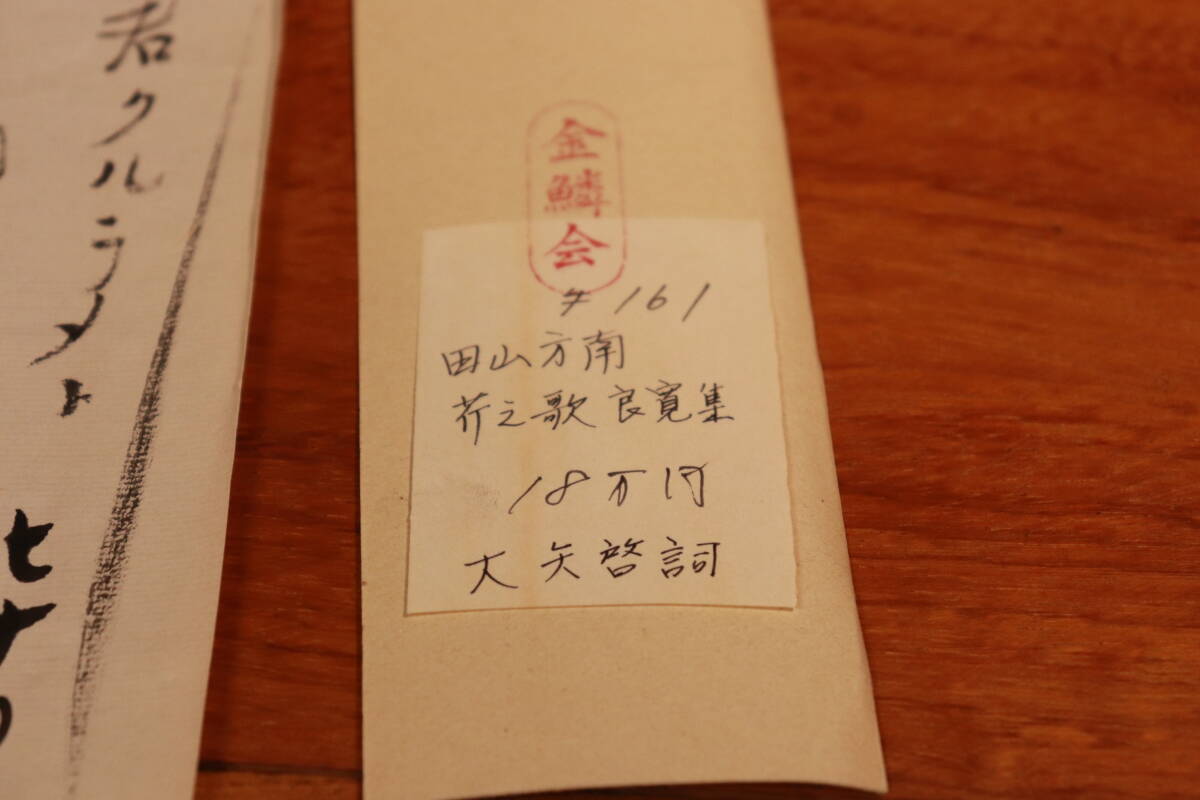 君クルラメト
ヒ
金鱗会
# 161
田山方南
芥之歌 良寛集
18万円
大矢啓詞